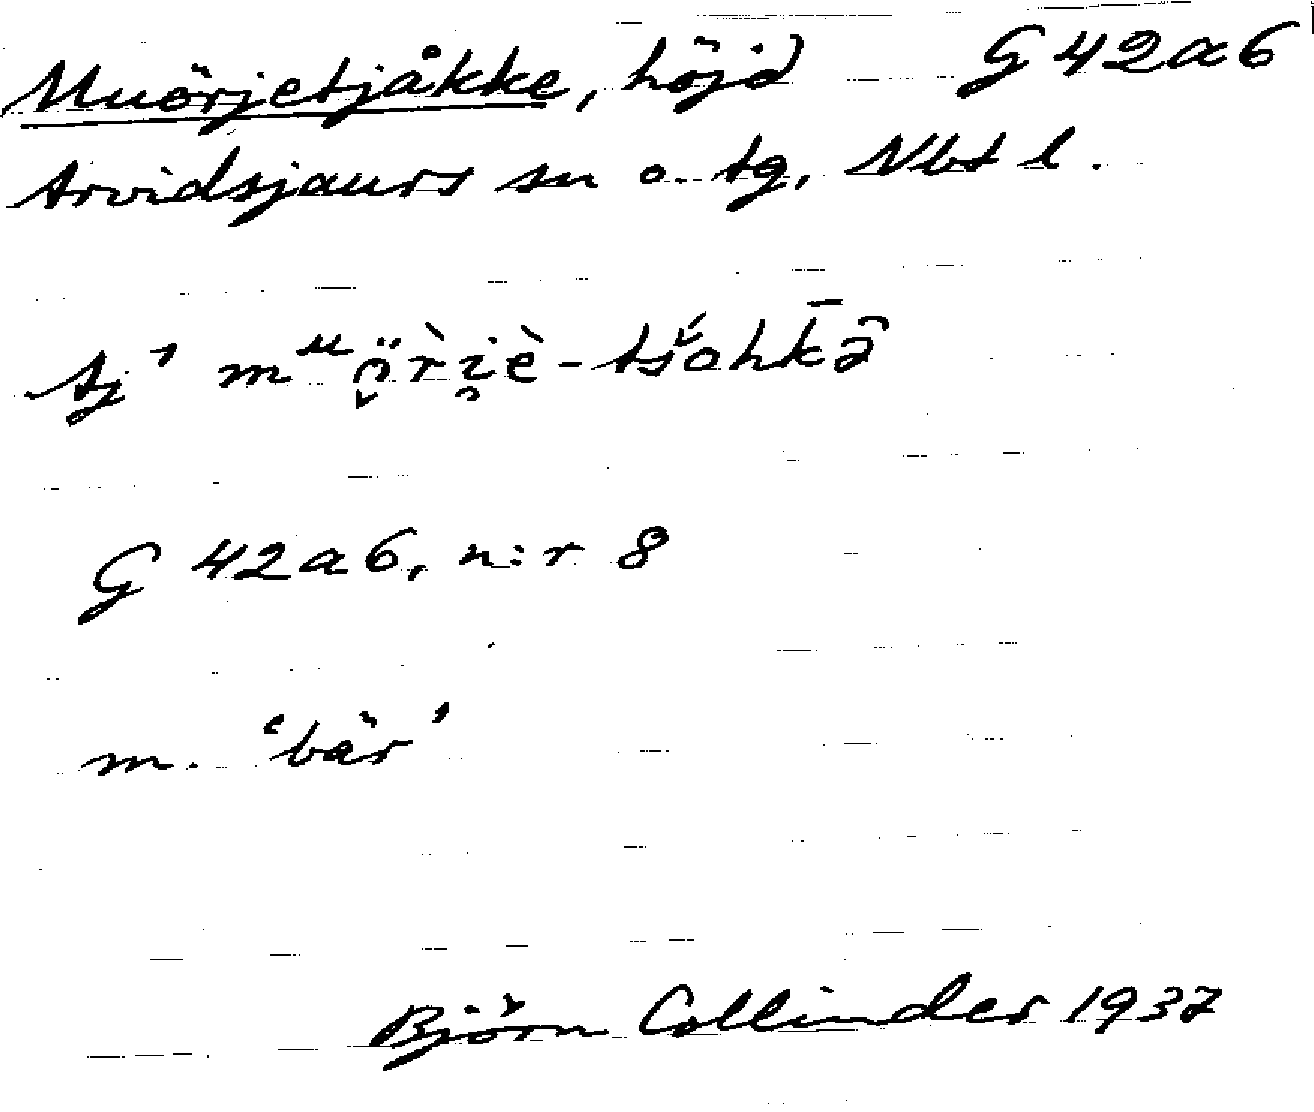 Muörjetjåkke, höjd G 42a6
Arvidsjaurs sn o. tg, Nbt l.
Aj' mᵘö̬r̀i̯è-tšŏhk̄ə̑
G 42a6, n:r 8
m. 'bär'
Björn Collinder 1937